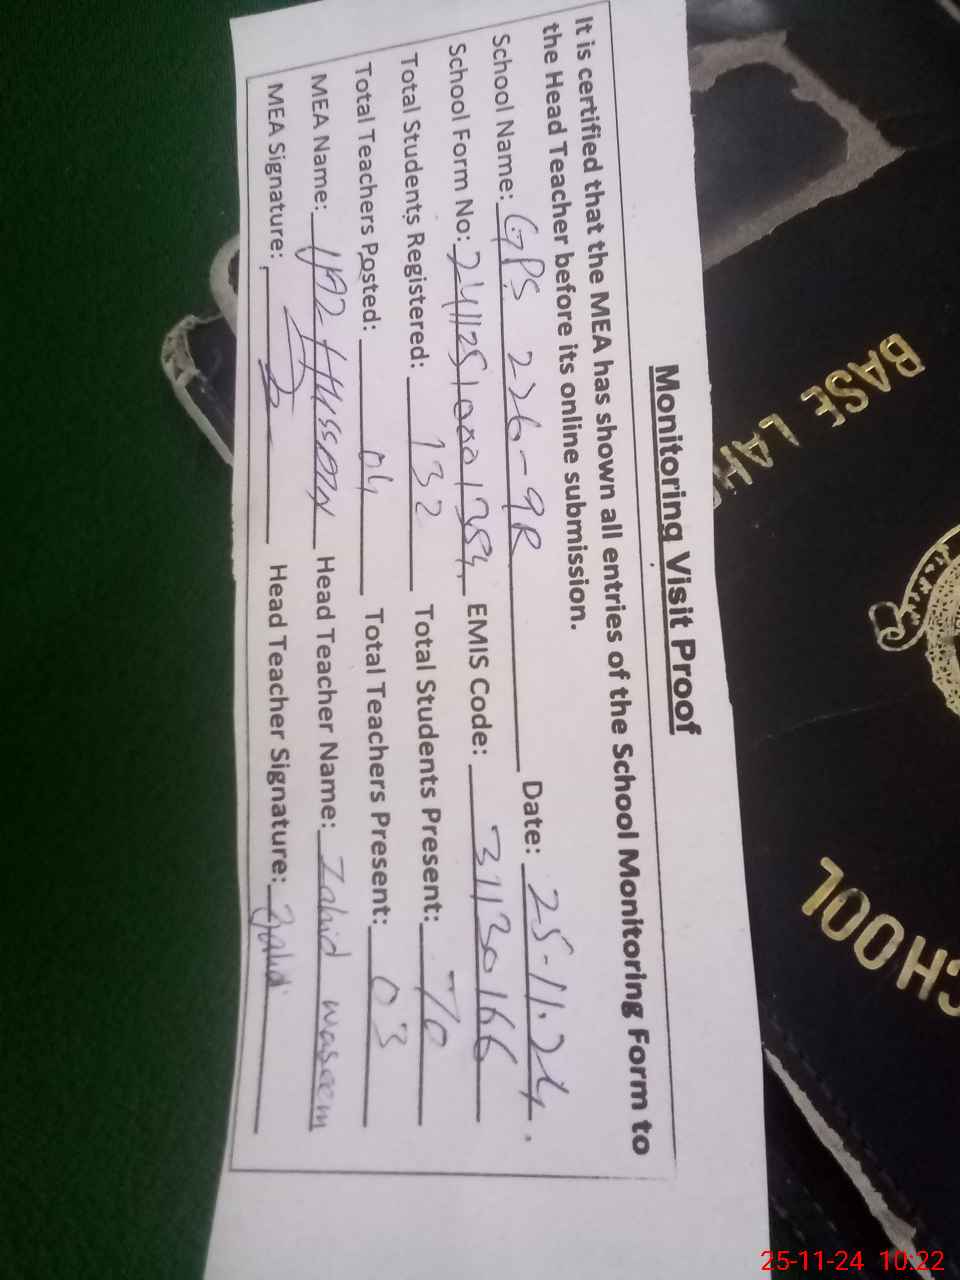 Monitoring Visit Proof
It is certified that the MEA has shown all entries of the School Monitoring Form to
the Head Teacher before its online submission.
School Name: GPS 226-9R Date: 25-11-24.
School Form No: 24112510001354 EMIS Code: 31130166
Total Students Registered: 132 Total Students Present: 70
Total Teachers Posted: 04 Total Teachers Present: 03
MEA Name: Hussain Head Teacher Name: Zahid waseem
MEA Signature: Head Teacher Signature: Zahid
BASE LAH
CHOOL
25-11-24 10:22